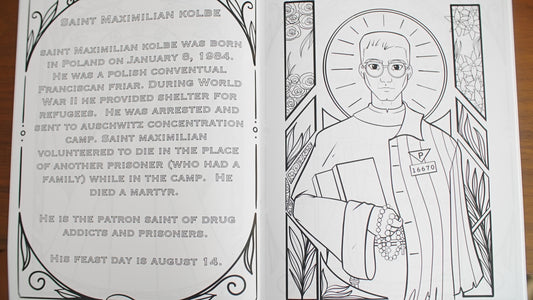 Saint Maximilian Kolbe
Saint Maximilian Kolbe was born
in Poland on January 8, 1984.
He was a Polish Conventual
Franciscan friar. During World
War II he provided shelter for
refugees. He was arrested and
sent to Auschwitz concentration
camp. Saint Maximilian
volunteered to die in the place
of another prisoner (who had a
family) while in the camp. He
died a martyr.
He is the patron saint of drug
addicts and prisoners.
His feast day is August 14.
P
16670